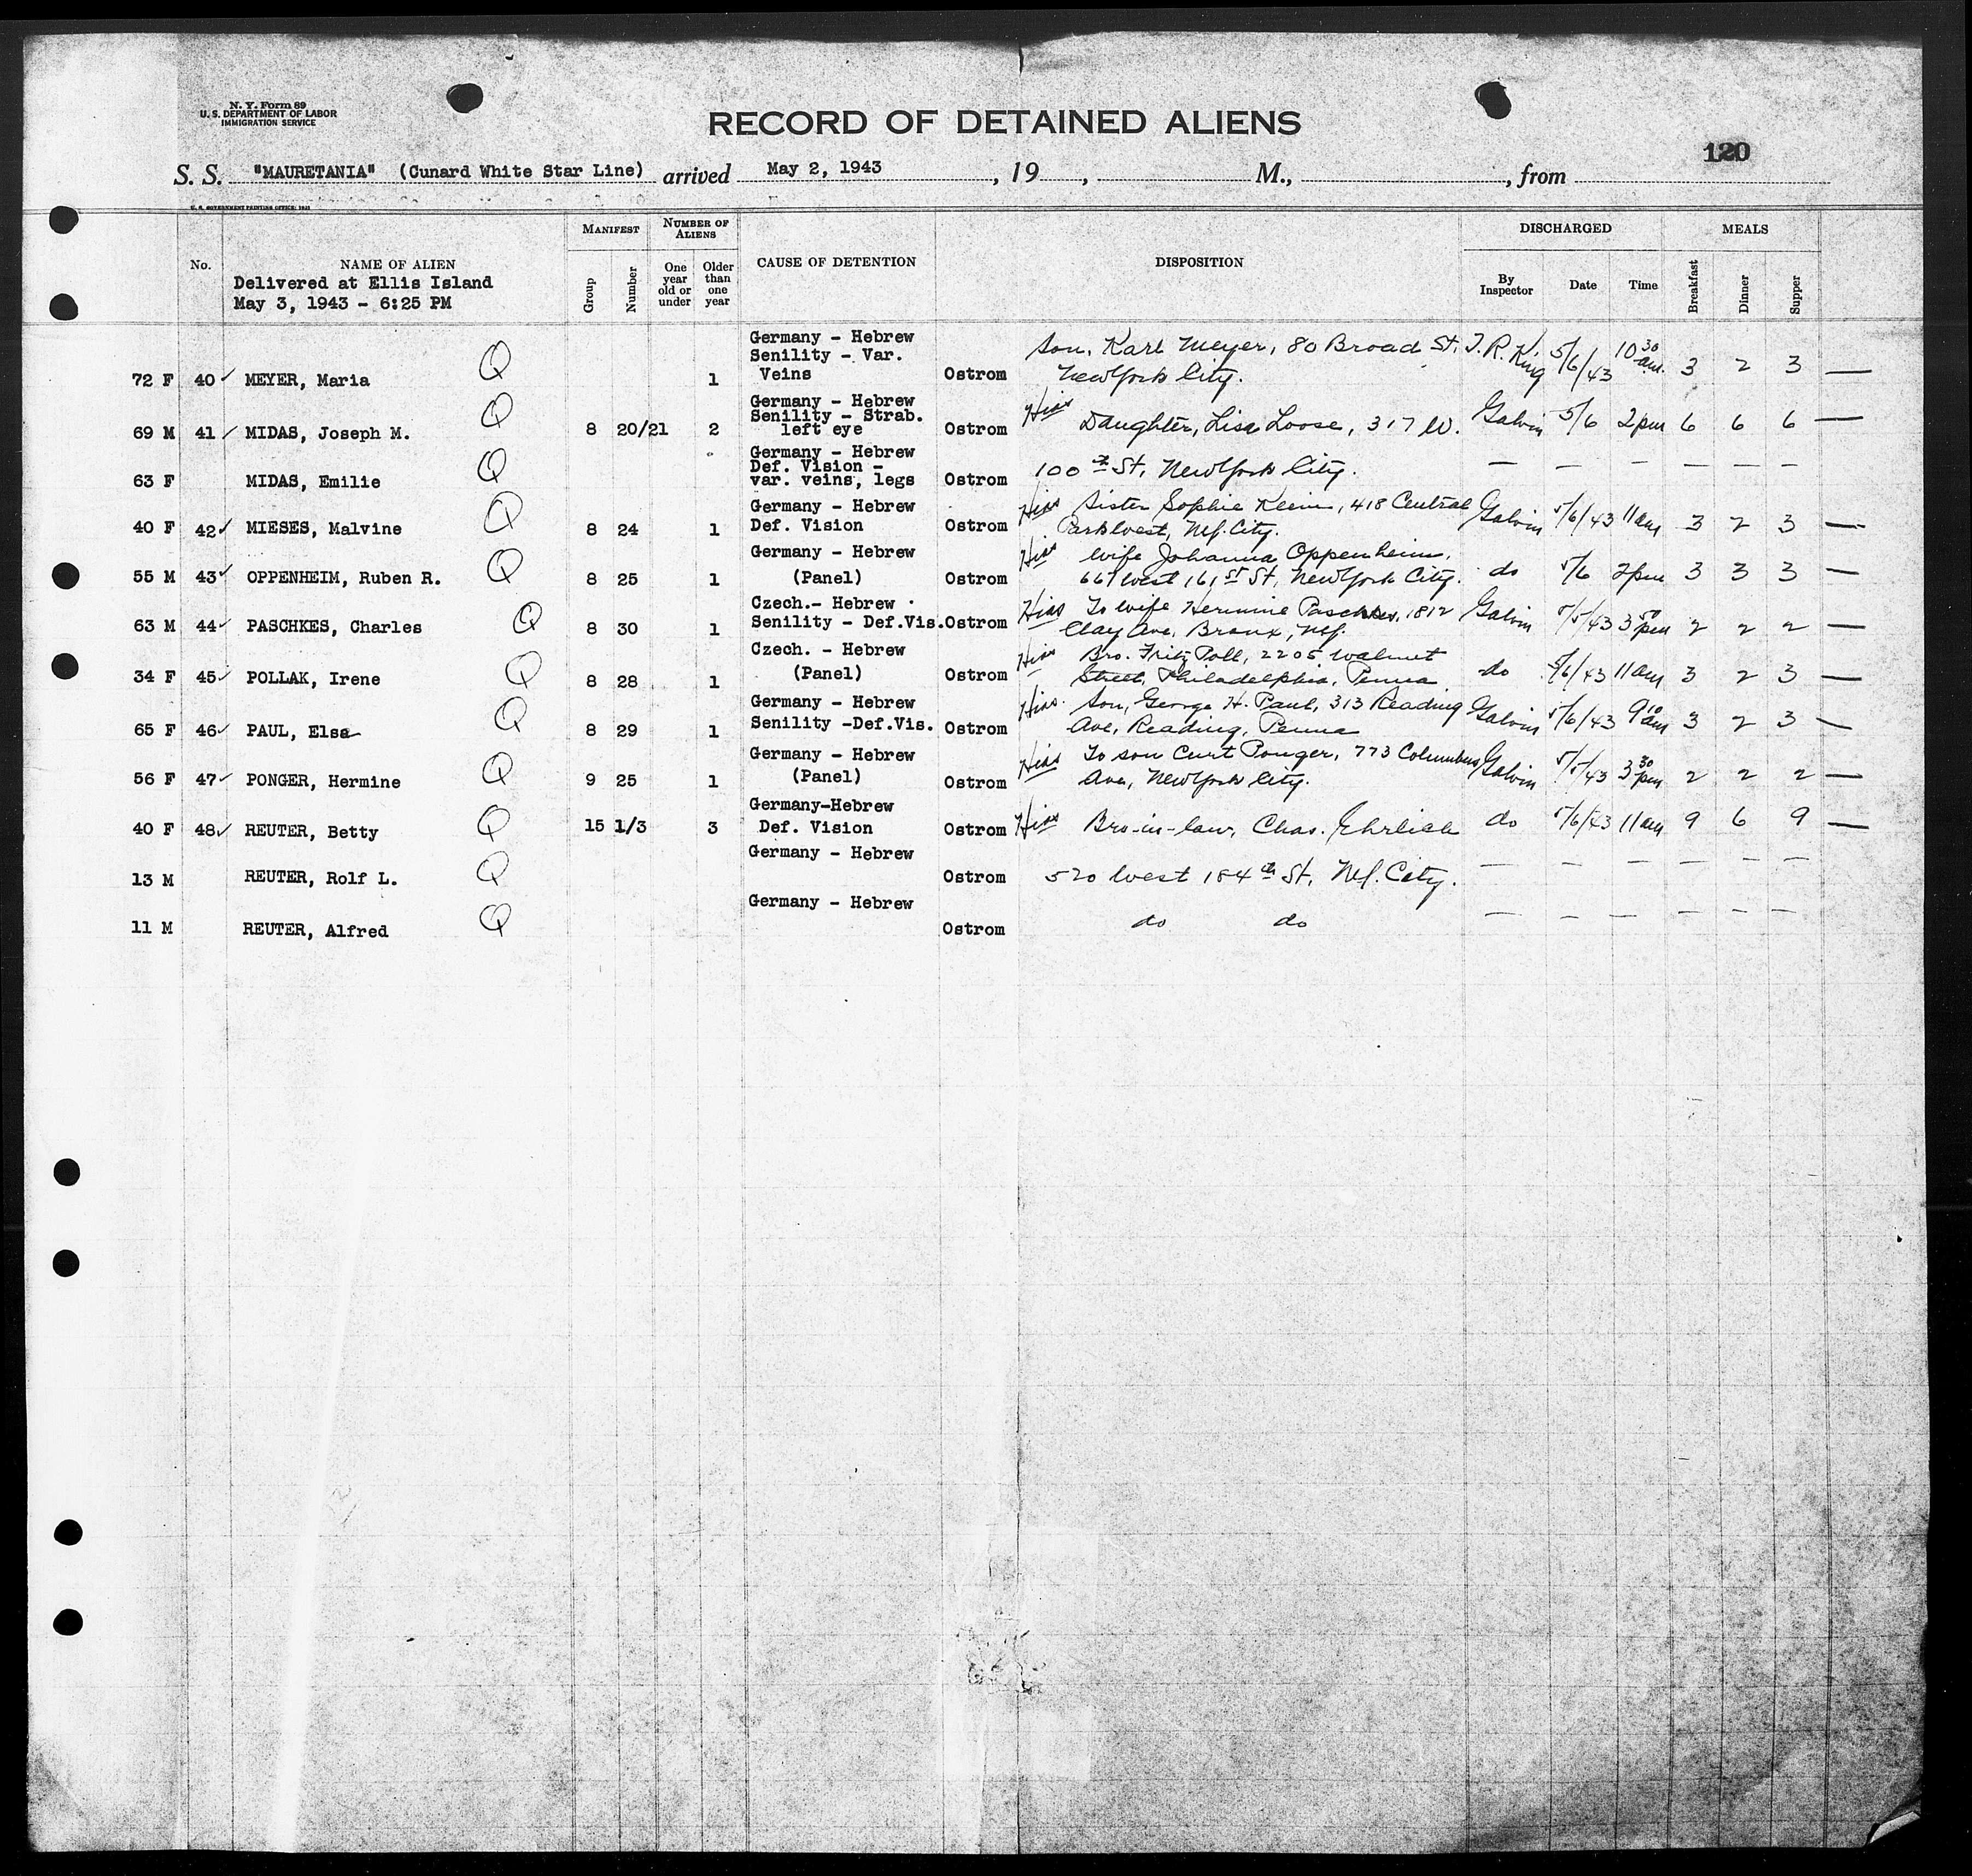 N. Y. Form 89
U. S. DEPARTMENT OF LABOR
IMMIGRATION SERVICE
RECORD OF DETAINED ALIENS
120
S. S. "MAURETANIA" (Cunard White Star Line) arrived May 2, 1943, 19, M., , from
U. S. GOVERNMENT PRINTING OFFICE: 1931
No. NAME OF ALIEN MANIFEST NUMBER OF ALIENS CAUSE OF DETENTION DISPOSITION DISCHARGED MEALS
Group Number One year old or under Older than one year By Inspector Date Time Breakfast Dinner Supper
Delivered at Ellis Island
May 3, 1943 - 6:25 PM
Germany - Hebrew
Senility - Var. Son, Karl Meyer, 80 Broad St. J. R. King 5/6/43 10 30 am.
72 F 40 ✓ MEYER, Maria Q 1 Veins Ostrom New York City. 3 2 3 —
Germany - Hebrew
Senility - Strab. Hias
69 M 41 ✓ MIDAS, Joseph M. Q 8 20/21 2 left eye Ostrom Daughter, Lisa Loose, 317 W. Galvin 5/6 2 pm 6 6 6 —
Germany - Hebrew
Def. Vision -
63 F MIDAS, Emilie Q var. veins, legs Ostrom 100 th St, New York City. — — — — — —
Germany - Hebrew Hias Sister Sophie Klein, 418 Central
40 F 42 ✓ MIESES, Malvine Q 8 24 1 Def. Vision Ostrom Park West, N.Y. City. Galvin 5/6/43 11 am 3 2 3 —
Germany - Hebrew Hias Wife Johanna Oppenheim,
55 M 43 ✓ OPPENHEIM, Ruben R. Q 8 25 1 (Panel) Ostrom 667 West 161 st St, New York City. do 5/6 2 pm 3 3 3 —
Czech.- Hebrew Hias To wife Hermine Paschkes, 1812
63 M 44 ✓ PASCHKES, Charles Q 8 30 1 Senility - Def.Vis. Ostrom Clay Ave, Bronx, N.Y. Galvin 5/5/43 3 50 pm 2 2 2 —
Czech. - Hebrew Hias Bro. Fritz Poll, 2205 Walnut
34 F 45 ✓ POLLAK, Irene Q 8 28 1 (Panel) Ostrom Street, Philadelphia, Penna do 5/6/43 11 am 3 2 3 —
Germany - Hebrew Hias. Son, George H. Paul, 313 Reading
65 F 46 ✓ PAUL, Elsa Q 8 29 1 Senility -Def.Vis. Ostrom Ave, Reading, Penna Galvin 5/6/43 9 10 am 3 2 3 —
Germany - Hebrew Hias To son Curt Ponger, 773 Columbus
56 F 47 ✓ PONGER, Hermine Q 9 25 1 (Panel) Ostrom Ave, New York City. Galvin 5/5/43 3 30 pm 2 2 2 —
Germany-Hebrew
40 F 48 ✓ REUTER, Betty Q 15 1/3 3 Def. Vision Ostrom Hias Bro-in-law, Chas. Ehrlich do 5/6/43 11 am 9 6 9 —
Germany - Hebrew
13 M REUTER, Rolf L. Q Ostrom 520 West 184 th St, N.Y. City. — — — — — —
Germany - Hebrew
11 M REUTER, Alfred Q Ostrom do do — — — — — —